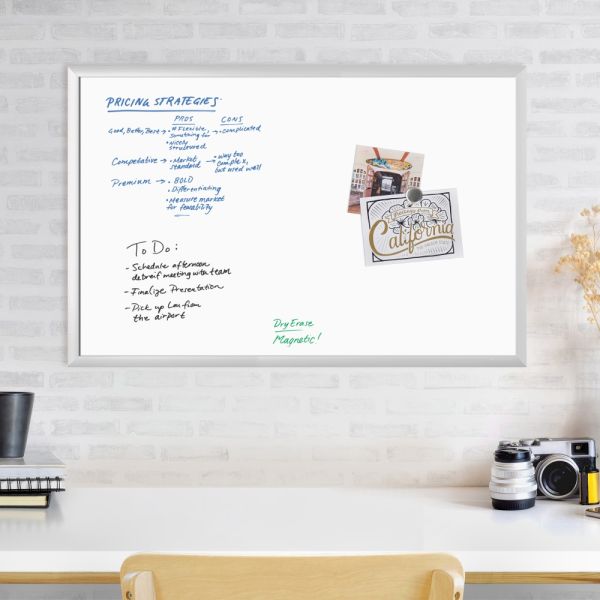 PRICING STRATEGIES
PROS CONS
Good, Better, Best → • # Flexible, → • complicated
something for
• Nicely
structured
Competative → • Market → • Way too
standard complex,
but used well
Premium → • BOLD
• Differentiating
• Measure market
for feasability
To Do:
- Schedule afternoon
debreif meeting with team
- Finalize Presentation
- Pick up Lau from
the airport
Dry Erase
Magnetic!
Greetings from
California
THE GOLDEN STATE